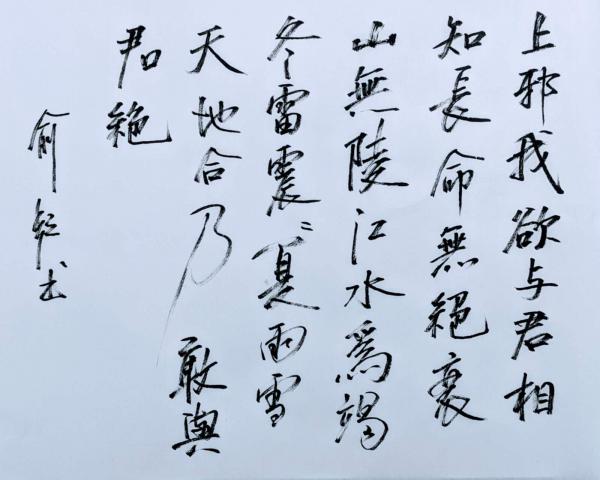 上邪我欲与君相
知長命無絕衰
山無陵江水爲竭
冬雷震〻夏雨雪
天地合乃敢與
君絕
俞書